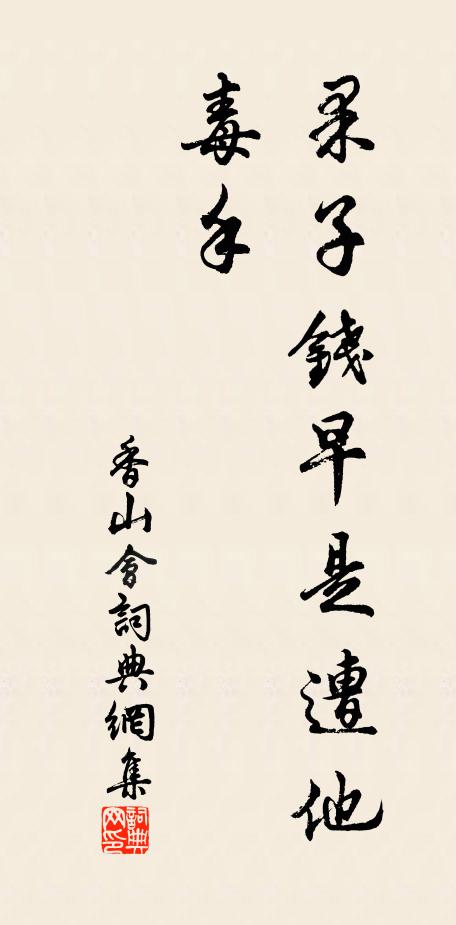 果子錢早是遭他
毒手
香山會詞典網集
詞典
网印